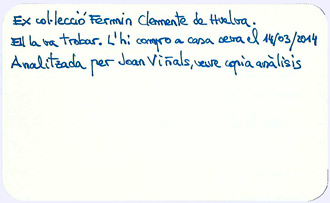 Ex col·lecció Fermin Clemente de Huelva.
Ell la va trobar. L'hi compro a casa seva el 14/03/2014
Analitzada per Joan Viñals, veure copia anàlisis